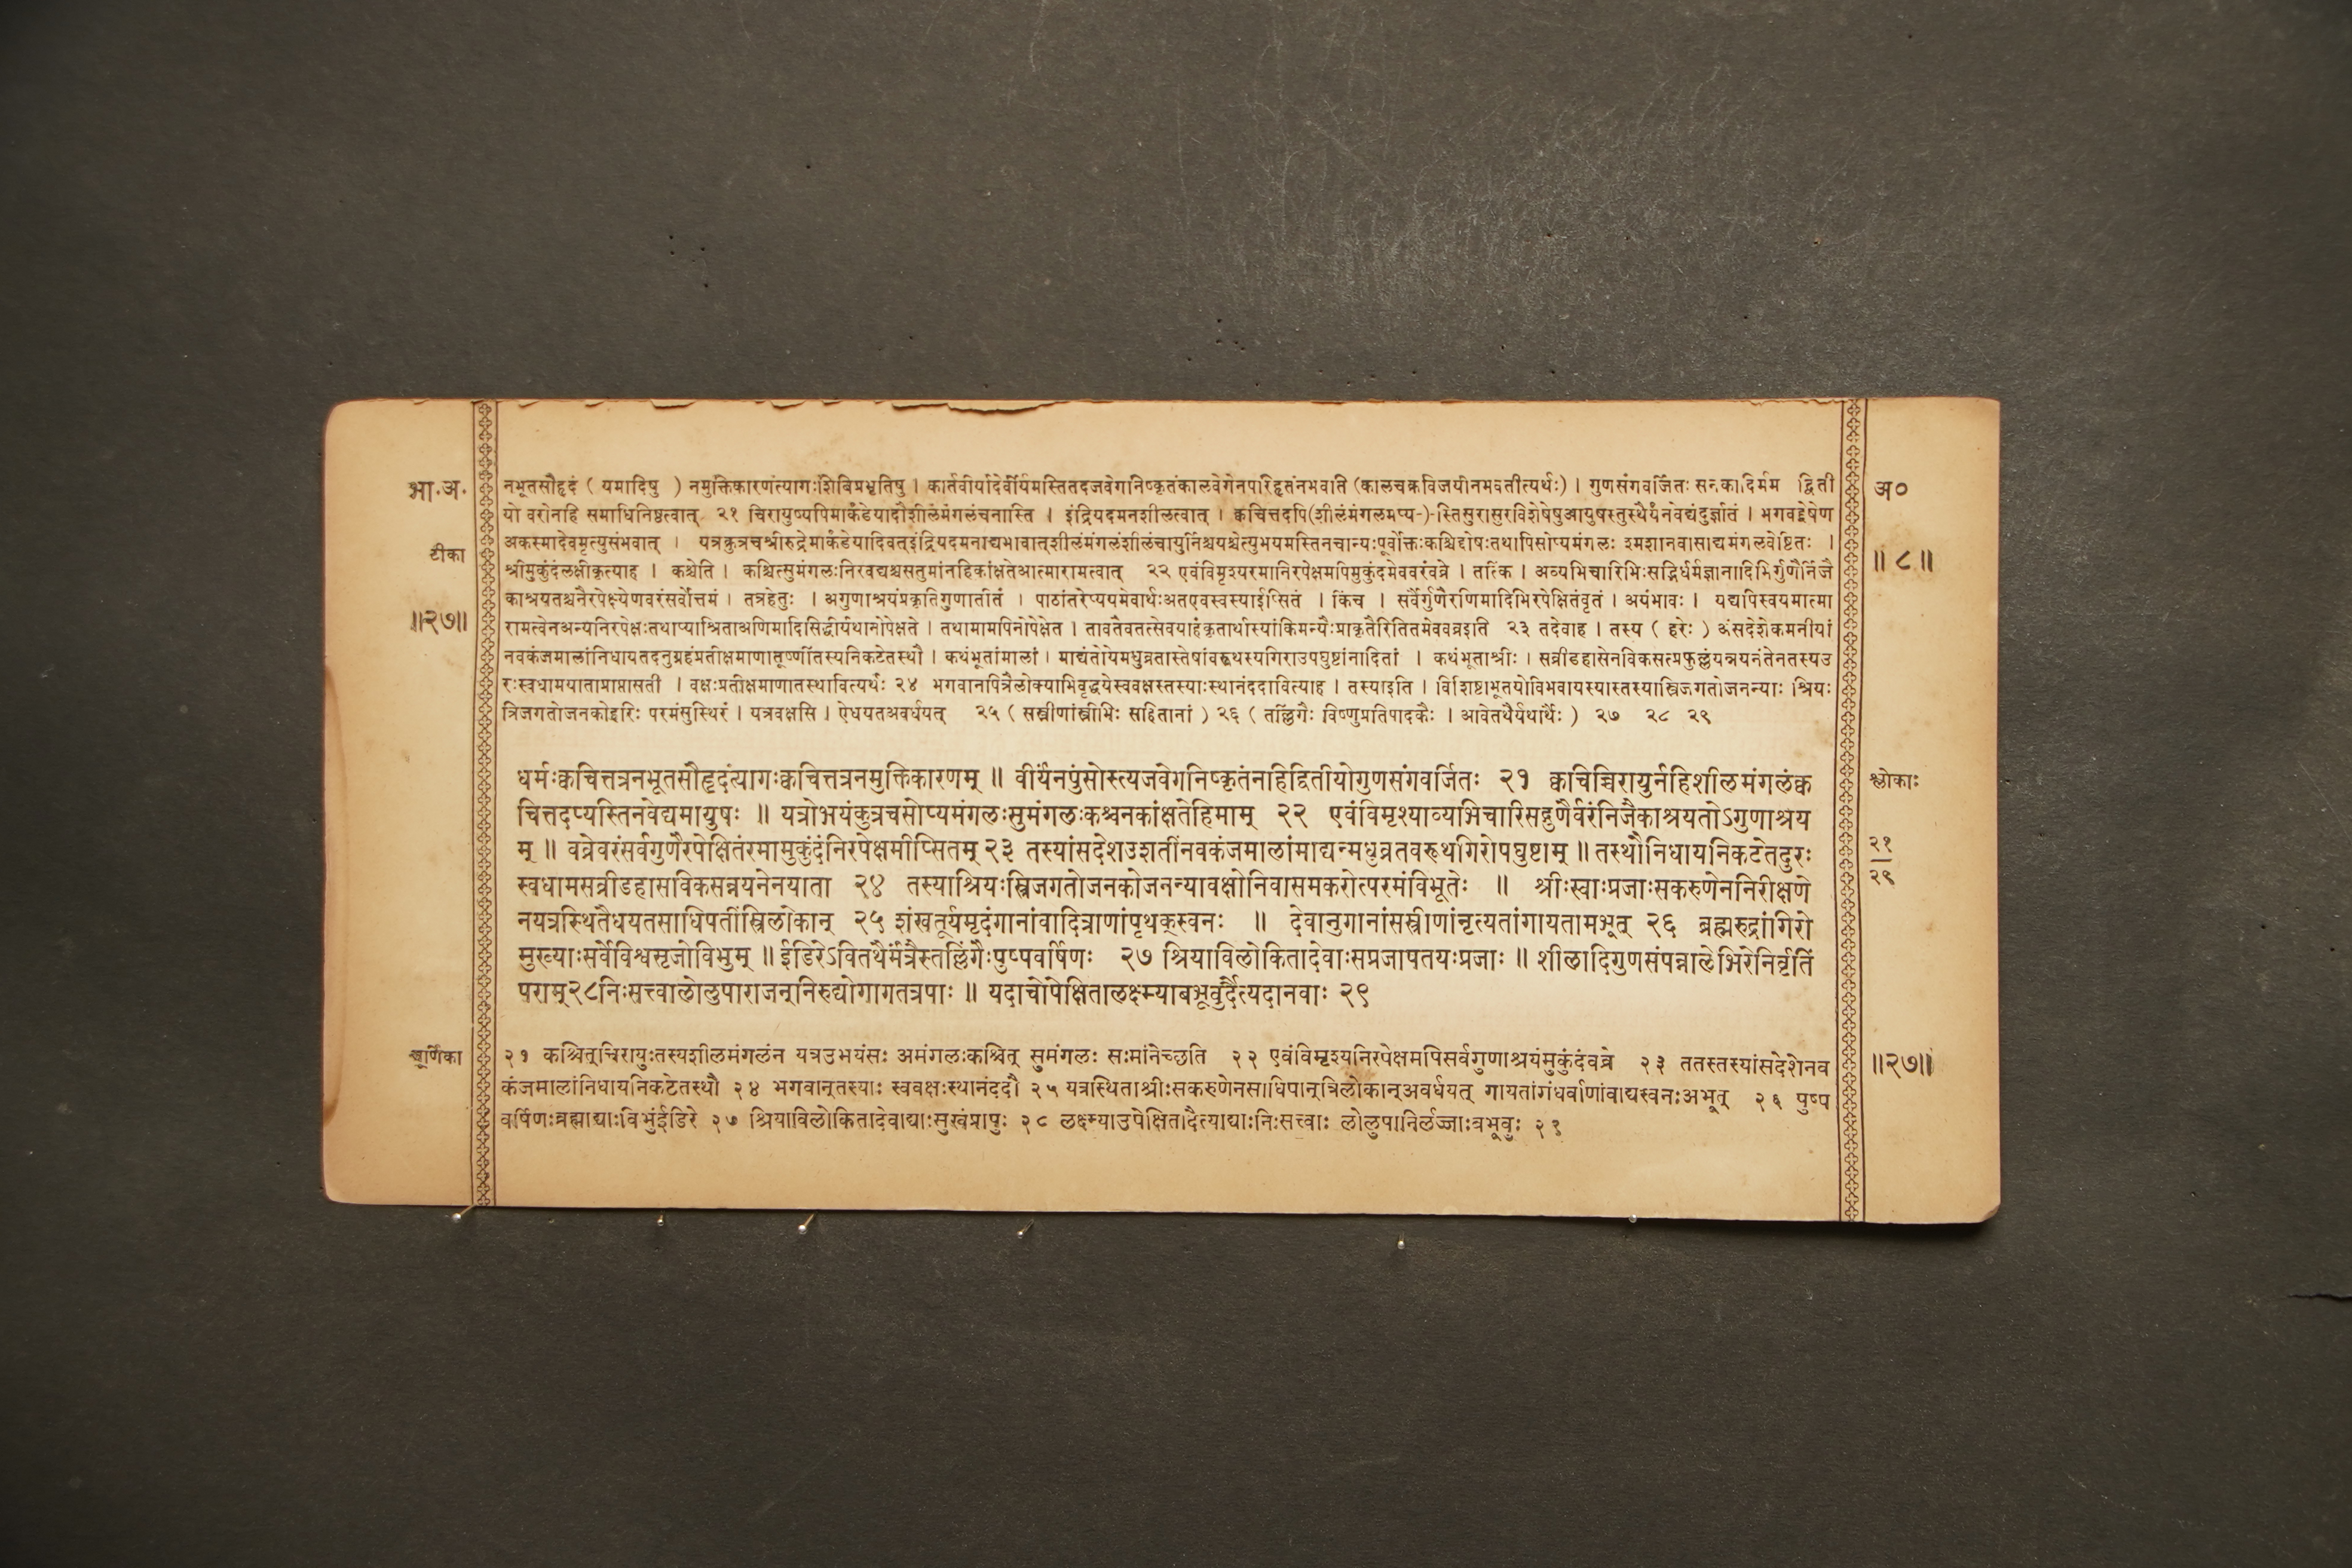 भा.अ.
टीका
॥२७॥
नभूतसौहृदं ( यमादिषु ) नमुक्तिकारणंत्यागःशिबिप्रभृतिषु । कार्तवीर्यादेर्वीर्यमस्तितदजवेगानिष्कृतंकालवेगेनपरिहृतंनभवति (कालचक्रविजयीनभवतीत्यर्थः) । गुणसंगवर्जितः सनकादिर्मम द्विती
यो वरोनहि समाधिनिष्ठत्वात् २१ चिरायुष्यपिमार्कंडेयादौशीलंमंगलंचनास्ति । इंद्रियदमनशीलत्वात् । क्वचित्तदपि(शीलंमंगलमप्य-)-स्तिसुरासुरविशेषेषुआयुषस्तुस्थैर्यंनवेद्यंदुर्ज्ञातं । भगवद्द्वेषेण
अकस्मादेवमृत्युसंभवात् । यत्रकुत्रचश्रीरुद्रेमार्कंडेयादिवत्इंद्रियदमनाद्यभावात्शीलंमंगलंशीलंचायुर्निश्चयश्चेत्युभयमस्तिनचान्यःपूर्वोक्तःकश्चिद्दोषःतथापिसोप्यमंगलः श्मशानवासाद्यमंगलवेष्टितः ।
श्रीमुकुंदंलक्षीकृत्याह । कश्चेति । कश्चित्सुमंगलःनिरवद्यश्चसतुमांनहिकांक्षतेआत्मारामत्वात् २२ एवंविमृश्यरमानिरपेक्षमपिमुकुंदमेववरंवव्रे । तत्किं । अव्यभिचारिभिःसद्भिर्धर्मज्ञानादिभिर्गुणैर्निजै
काश्रयतश्चनैरपेक्ष्येणवरंसर्वोत्तमं । तत्रहेतुः । अगुणाश्रयंप्रकृतिगुणातीतं । पाठांतरेप्ययमेवार्थःअतएवस्वस्याईप्सितं । किंच । सर्वैर्गुणैरणिमादिभिरपेक्षितंवृतं । अयंभावः । यद्यपिस्वयमात्मा
रामत्वेनअन्यनिरपेक्षःतथाप्याश्रिताअणिमादिसिद्धीर्यथानोपेक्षते । तथामामपिनोपेक्षेत । तावतैवतत्सेवयाहंकृतार्थास्यांकिमन्यैःप्राकृतैरितितमेववव्रइति २३ तदेवाह । तस्य ( हरेः ) अंसदेशेकमनीयां
नवकंजमालांनिधायतदनुग्रहंप्रतीक्षमाणातूष्णींतस्यनिकटेतस्थौ । कथंभूतांमालां । माद्यंतोयेमधुव्रतास्तेषांवरूथस्यगिराउपघुष्टांनादितां । कथंभूताश्रीः । सव्रीडहासेनविकसत्प्रफुल्लंयन्नयनंतेनतस्यउ
रःस्वधामयाताप्राप्तासती । वक्षःप्रतीक्षमाणातस्थावित्यर्थः २४ भगवानपित्रैलोक्याभिवृद्धयेस्ववक्षस्तस्याःस्थानंददावित्याह । तस्याइति । विशिष्टाभूतयोविभवायस्यास्तस्यास्त्रिजगतोजनन्याः श्रियः
त्रिजगतोजनकोहरिः परमंसुस्थिरं । यत्रवक्षसि । ऐधयतअवर्धयत् २५ ( सस्त्रीणांस्त्रीभिः सहितानां ) २६ ( तल्लिंगैः विष्णुप्रतिपादकैः । आवेतथैर्यथार्थैः ) २७ २८ २९
अ०
॥ ८ ॥
धर्मःक्वचित्तत्रनभूतसौहृदंत्यागःक्वचित्तत्रनमुक्तिकारणम् ॥ वीर्यंनपुंसोस्त्यजवेगनिष्कृतंनहिद्वितीयोगुणसंगवर्जितः २१ क्वचिच्चिरायुर्नहिशीलमंगलंक्व
चित्तदप्यस्तिनवेद्यमायुषः ॥ यत्रोभयंकुत्रचसोप्यमंगलःसुमंगलःकश्चनकांक्षतेहिमाम् २२ एवंविमृश्याव्यभिचारिसद्गुणैर्वरंनिजैकाश्रयतोऽगुणाश्रय
म् ॥ वव्रेवरंसर्वगुणैरपेक्षितंरमामुकुंदंनिरपेक्षमीप्सितम् २३ तस्यांसदेशउशतींनवकंजमालांमाद्यन्मधुव्रतवरूथगिरोपघुष्टाम् ॥ तस्थौनिधायनिकटेतदुरः
स्वधामसव्रीडहासविकसन्नयनेनयाता २४ तस्याश्रियःस्त्रिजगतोजनकोजनन्यावक्षोनिवासमकरोत्परमंविभूतेः ॥ श्रीःस्वाःप्रजाःसकरुणेननिरीक्षणे
नयत्रस्थितैधयतसाधिपतींस्त्रिलोकान् २५ शंखतूर्यमृदंगानांवादित्राणांपृथक्स्वनः ॥ देवानुगानांसस्त्रीणांनृत्यतांगायतामभूत् २६ ब्रह्मरुद्रांगिरो
मुख्याःसर्वेविश्वसृजोविभुम् ॥ ईडिरेऽवितथैर्मंत्रैस्तल्लिंगैःपुष्पवर्षिणः २७ श्रियाविलोकितादेवाःसप्रजापतयःप्रजाः ॥ शीलादिगुणसंपन्नालेभिरेनिर्वृतिं
पराम्२८निःसत्त्वालोलुपाराजन्निरुद्योगागतत्रपाः ॥ यदाचोपेक्षितालक्ष्म्याबभूवुर्दैत्यदानवाः २९
श्लोकाः
२१
२९
चूर्णिका
२१ कश्चित्चिरायुःतस्यशीलमंगलंन यत्रउभयंसः अमंगलःकश्चित् सुमंगलः सःमांनेच्छति २२ एवंविमृश्यनिरपेक्षमपिसर्वगुणाश्रयंमुकुंदंवव्रे २३ ततस्तस्यांसदेशेनव
कंजमालांनिधायनिकटेतस्थौ २४ भगवान्तस्याः स्ववक्षःस्थानंददौ २५ यत्रस्थिताश्रीःसकरुणेनसाधिपान्त्रिलोकान्अवर्धयत् गायतांगंधर्वाणांवाद्यस्वनःअभूत् २६ पुष्प
वर्षिणःब्रह्माद्याःविभुंईडिरे २७ श्रियाविलोकितादेवाद्याःसुखंप्रापुः २८ लक्ष्म्याउपेक्षितादैत्याद्याःनिःसत्त्वाः लोलुपानिर्लज्जाःबभूवुः २९
॥२७॥